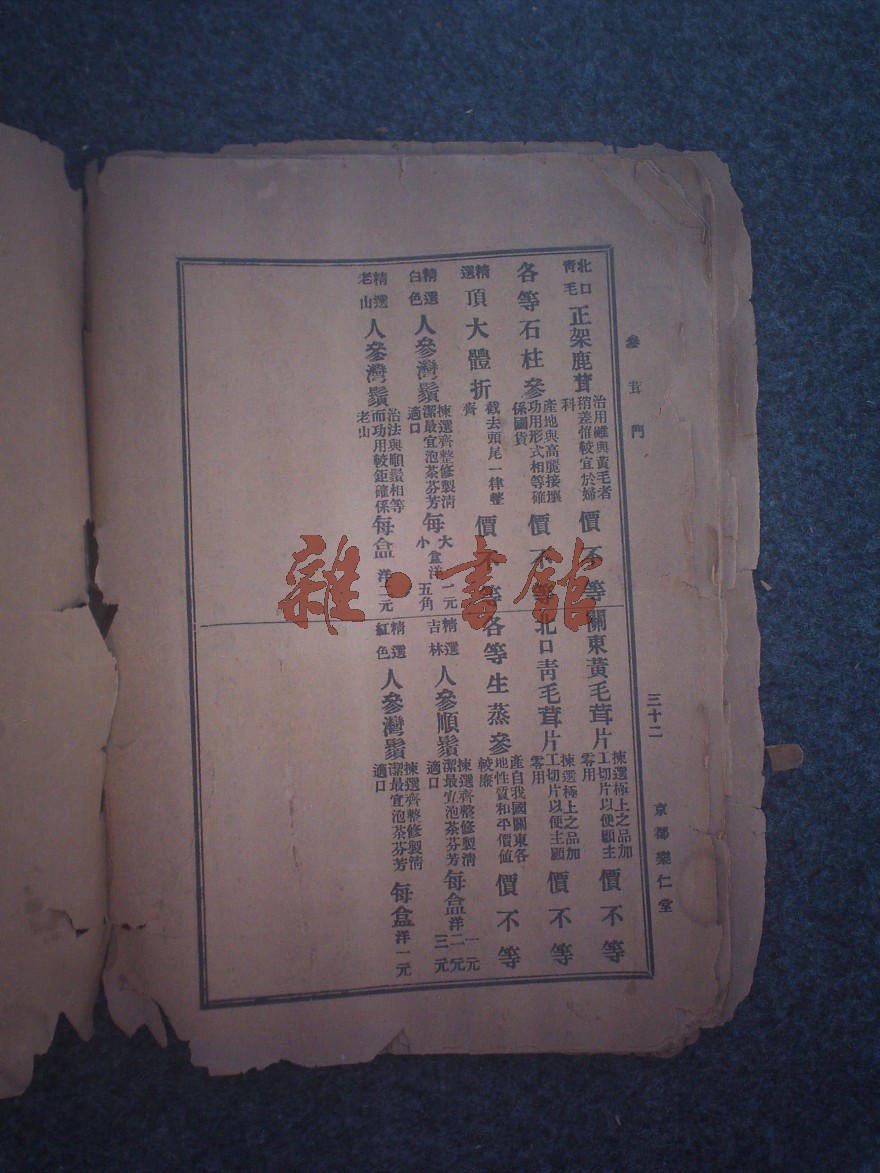 參茸門
三十二
京都樂仁堂
北口青毛
正架鹿茸
治用雖與黃毛者稍差惟較宜於婦科
價不等
各等石柱參
產地與高麗接壤功用形式相等確係國貨
價不等
精選
頂大體折
截去頭尾一律整齊
價不等
精選白色
人參灣鬚
揀選齊整修製清潔最宜泡茶芬芳適口
每大小盒洋一元五角
精選老山
人參灣鬚
治法與順鬚相等而功用較鉅確係老山
每盒洋二元
關東黃毛茸片
揀選極上之品加工切片以便顧主零用
價不等
北口青毛茸片
揀選極上之品加工切片以便主顧零用
價不等
各等生蒸參
產自我國關東各地性質和平價值較廉
價不等
精選吉林
人參順鬚
揀選齊整修製清潔最宜泡茶芬芳適口
每盒洋一元二元三元
精選紅色
人參灣鬚
揀選齊整修製清潔最宜泡茶芬芳適口
每盒洋一元
雜·書館